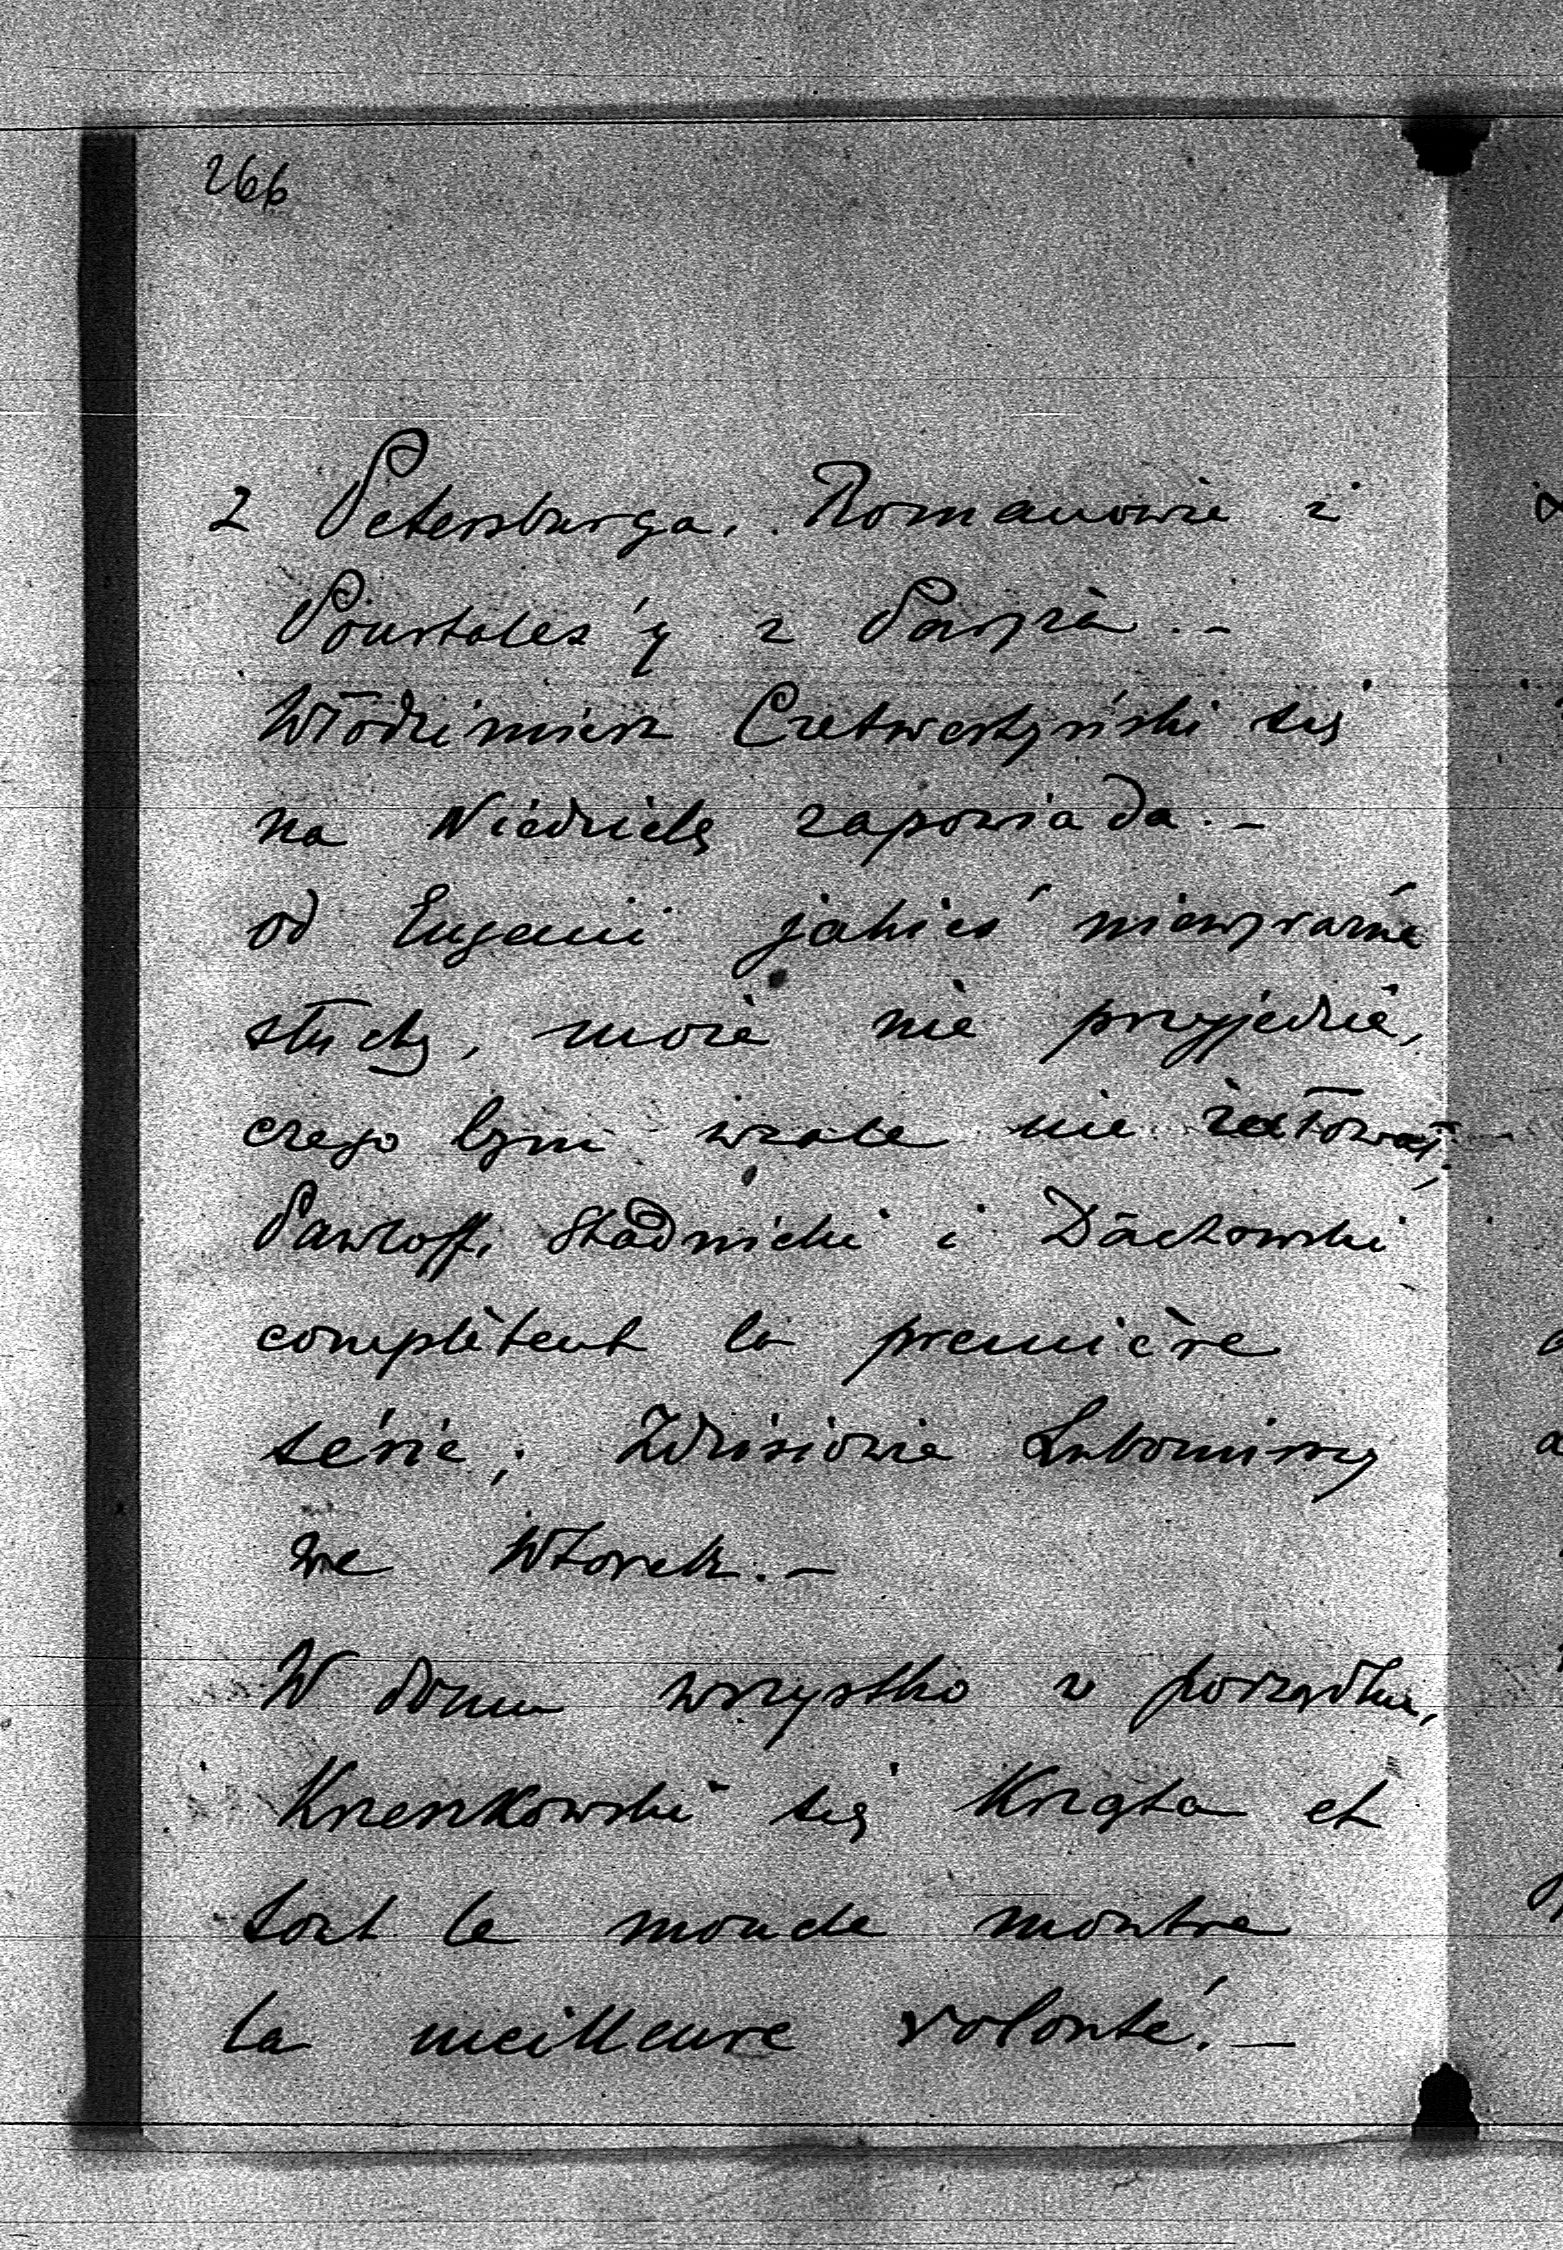 266
z Petersburga, Romanowie i
Pourtales'y z Paryża. –
Włodzimierz Czetwertyński się
na Niedzielę zapowiada. –
od Eugenii jakieś niewyraźne
słuchy, może nie przyjedzie,
czego bym wcale nie żałował.
Pawloff, Stadnicki i Dachowski
complètent la première
série; Zdzisiowie Lubomirscy
we Wtorek. –
W domu wszystko w porządku,
Krzeszkowski się krząta et
tout le monde montre
la meilleure volonté. –